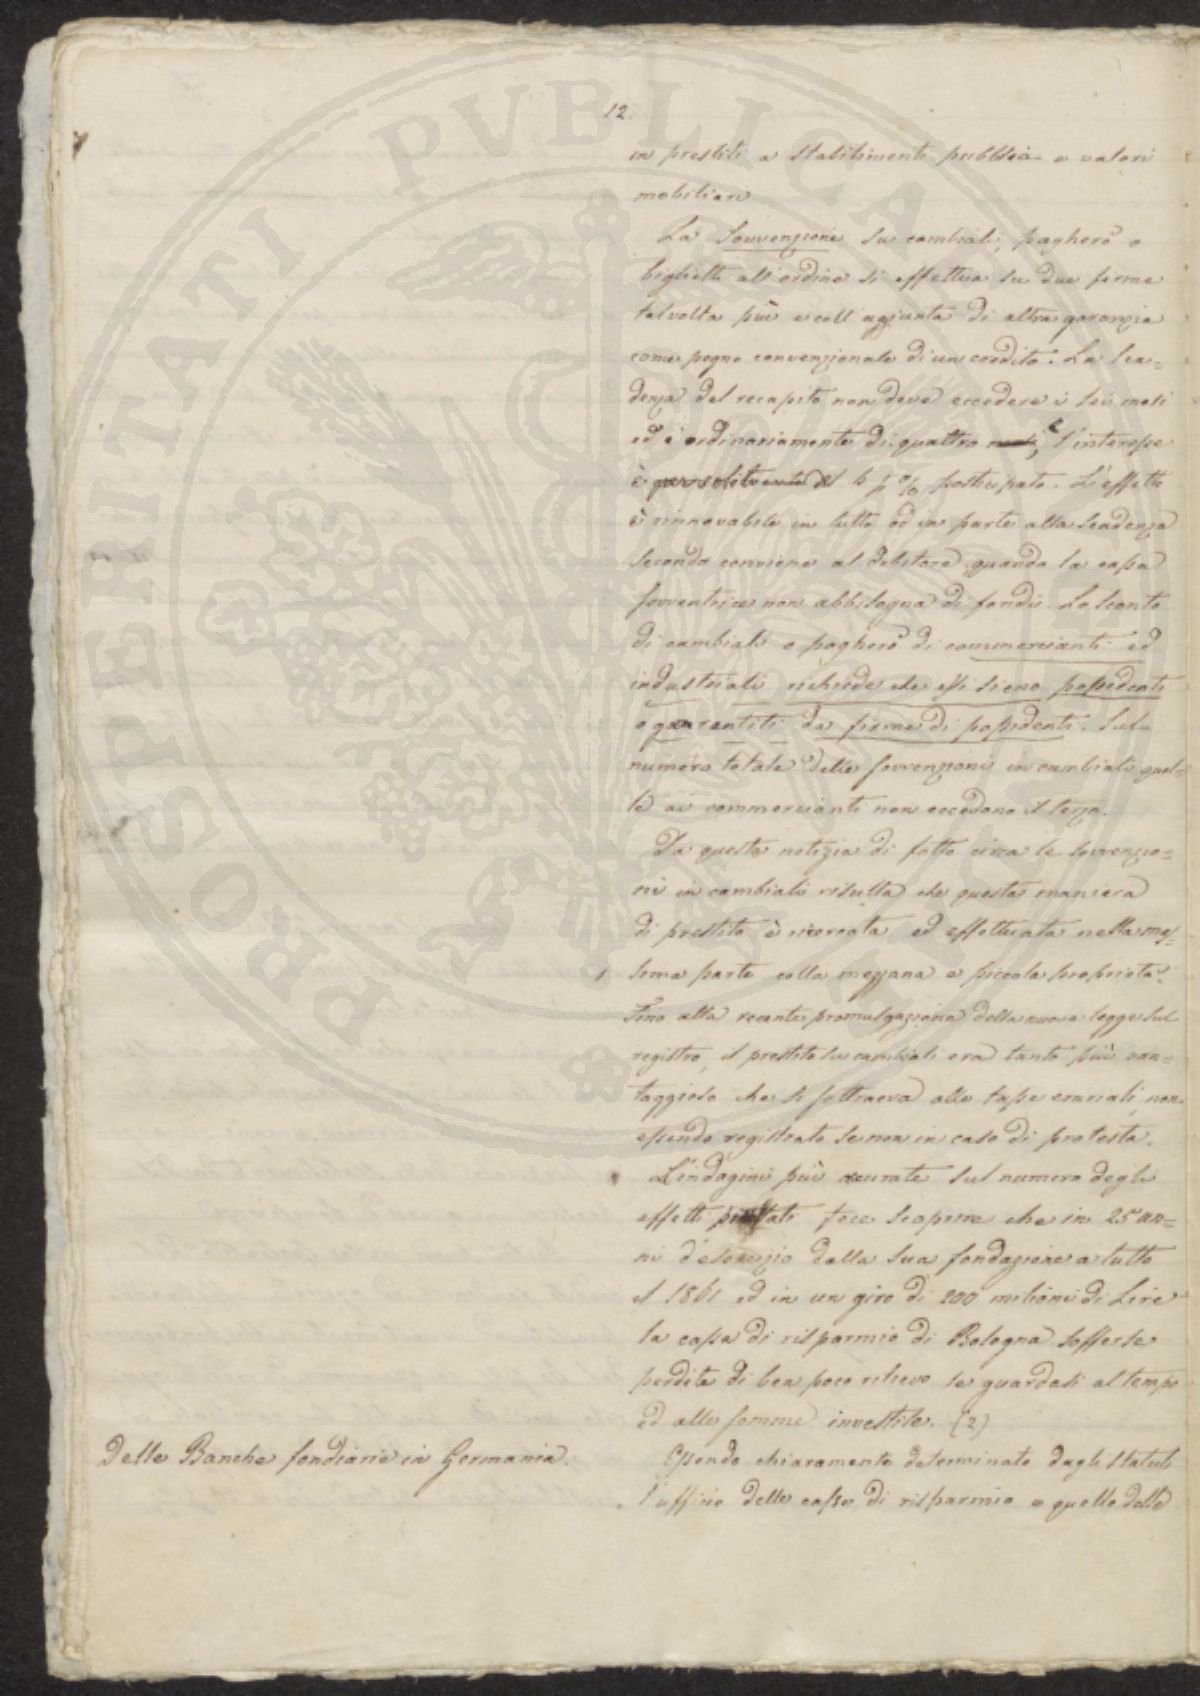 12.
in prestiti a stabilimenti pubblici e valori
mobiliari
La sovvenzione su cambiali, pagherò o
biglietti all'ordine si effettua su due firme
talvolta più e coll'aggiunta di altra garanzia
come pegno convenzionale di un credito. La sca=
denza del recapito non deve eccedere i sei mesi
ed è ordinariamente di quattro mesi, e l'interesse
è al 6 ½ % posticipato. L'effetto
è rinnovabile in tutto od in parte alla scadenza
secondo conviene al debitore quando la cassa
sovventrice non abbisogna di fondi. Lo sconto
di cambiali o pagherò di commercianti ed
industriali richiede che essi sieno possidenti
o guarentiti da firme di possidenti. Sul
numero totale delle sovvenzioni in cambiali quel=
le ai commercianti non eccedono il terzo.
Da questa notizia di fatto circa le sovvenzio=
ni in cambiali risulta che questa maniera
di prestito è ricercata ed effettuata nella mas=
sima parte colla mezzana e piccola proprietà.
Fino alla recente promulgazione della nuova legge sul
registro, il prestito su cambiali era tanto più van=
taggioso che si sottraeva alle tasse erariali, non
essendo registrato se non in caso di protesta.
L'indagini più accurate sul numero degli
effetti fece scoprire che in 25 an=
ni d'esercizio dalla sua fondazione a tutto
il 1861 ed in un giro di 200 milioni di Lire
la cassa di risparmio di Bologna sofferse
perdite di ben poco rilievo se guardasi al tempo
ed alle somme investite. (2)
Delle Banche fondiarie in Germania.
Essendo chiaramente determinato dagli statuti
l'ufficio delle casse di risparmio e quello delle
PROSPERITATI PVBLICAE